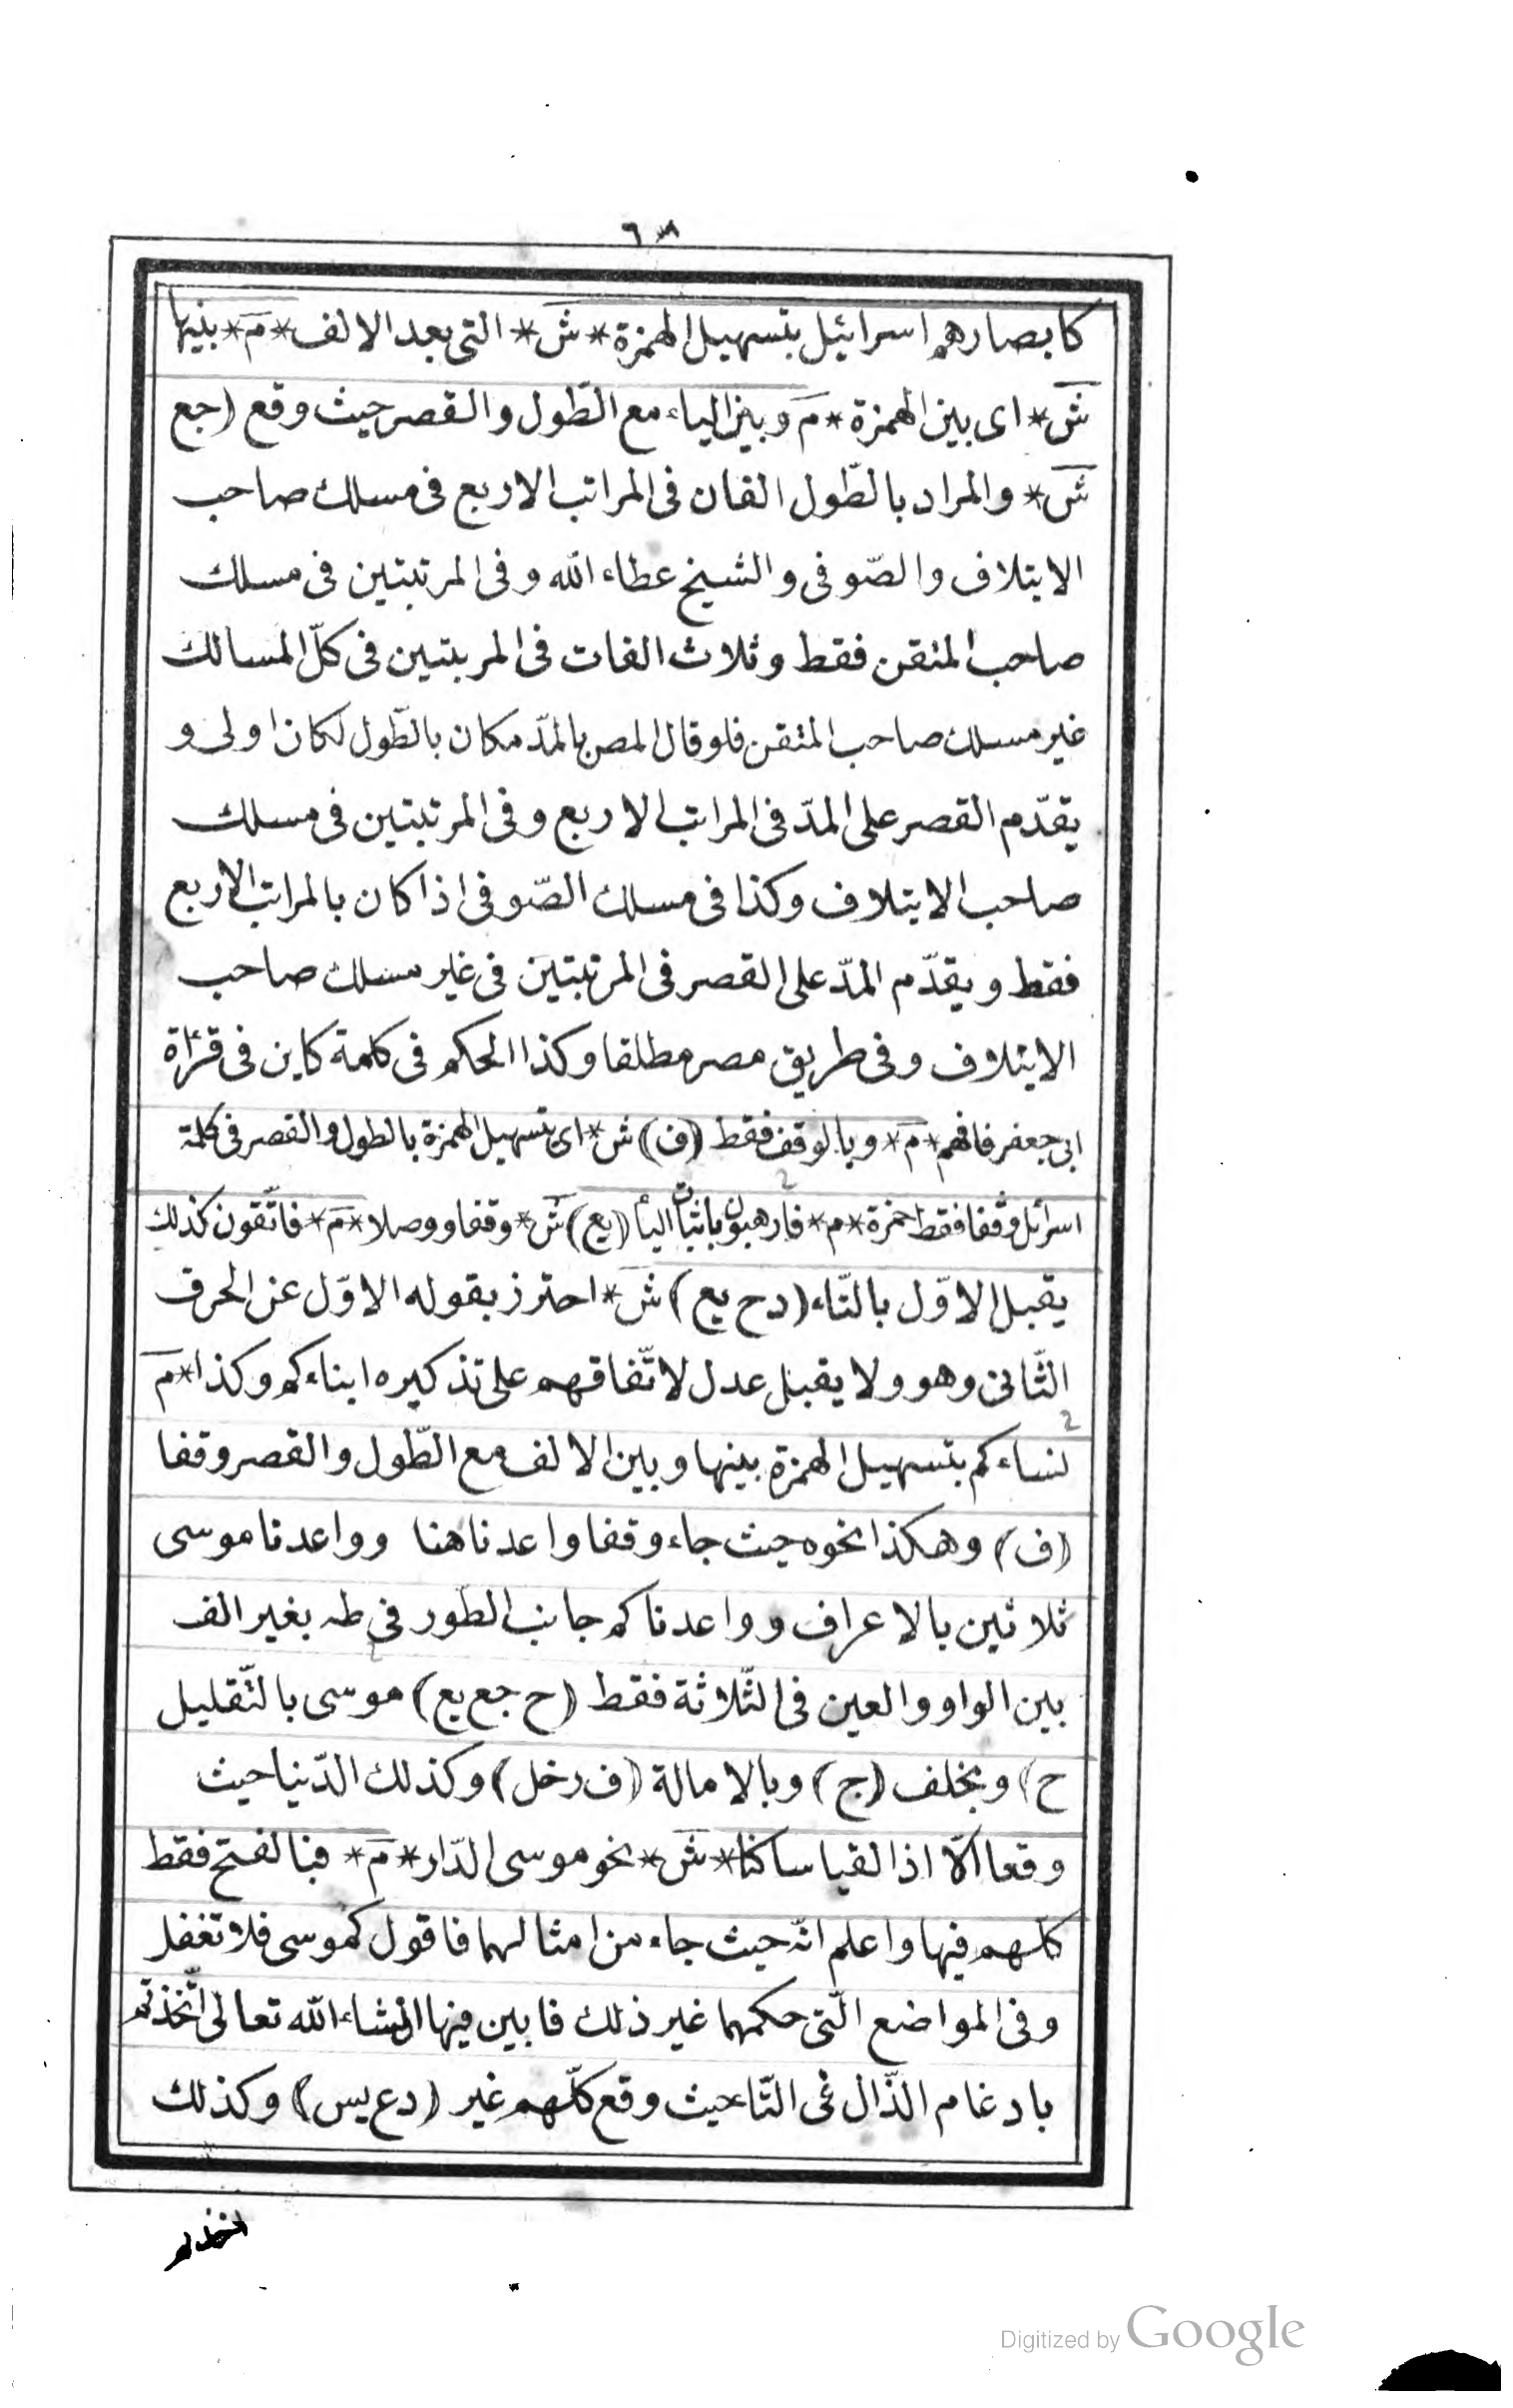 ٦٨
كابصارهم اسرائيل بتسهيل الهمزة * ش * التى بعد الالف * م * بينها
ش * اى بين الهمزة * م وبين الياء مع الطّول والقصر حيث وقع (جع
ش * والمراد بالطّول الفان فى المراتب الاربع فى مسلك صاحب
الايتلاف والصّوفى والشيخ عطاء الله وفى المرتبتين فى مسلك
صاحب المتقن فقط وثلاث الفات فى المرتبتين فى كلّ المسالك
غير مسلك صاحب المتقن فلو قال المص بالمدّ مكان بالطّول لكان اولى و
يقدّم القصر على المدّ فى المراتب الاربع وفى المرتبتين فى مسلك
صاحب الايتلاف وكذا فى مسلك الصّوفى اذا كان بالمراتب الاربع
فقط ويقدّم المدّ على القصر فى المرتبتين فى غير مسلك صاحب
الايتلاف وفى طريق مصر مطلقا وكذا الحكم فى كلمة كاين فى قرئاة
ابى جعفر فافهم * م * وبالوقف فقط (ف) ش * اى بتسهيل الهمزة بالطول والقصر فى كلمة
اسرائل وقفا فقط حمزة * م * فارهبون باثبات اليأ (يع) ش * وقفا ووصلا * م * فاتّقون كذلك
يقبل الاوّل بالتّاء (دح يع) ش * احترز بقوله الاوّل عن الحرف
الثّانى وهو ولا يقبل عدل لاتّفاقهم على تذكيره ابناءكم وكذا * م
نساءكم بتسهيل الهمزة بينها وبين الالف مع الطّول والقصر وقفا
(ف) وهكذا نحوه حيث جاء وقفا واعدنا هنا وواعدنا موسى
ثلاثين بالاعراف وواعدناكم جانب الطّور فى طه بغير الف
بين الواو والعين فى الثّلاثة فقط (ح جع يع) موسى بالتّقليل
ح) وبخلف (ج) وبالامالة (ف رخل) وكذلك الدّنيا حيث
وقعا الّا اذا لقيا ساكنا * ش * نحو موسى الدّار * م * فبالفتح فقط
كلّهم فيها واعلم انّه حيث جاء من امثالهما فاقول كموسى فلا تغفل
وفى المواضع الّتى حكمهما غير ذلك فابين فيها انشاء الله تعالى اتّخذتم
بادغام الذّال فى التّاء حيث وقع كلّهم غير (دع يس) وكذلك
اتخذتم
Digitized by Google